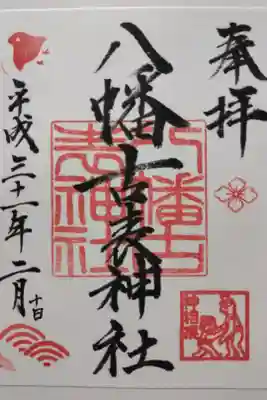 奉拝
八幡古表神社
八幡古
表神社
平成三十一年二月十日